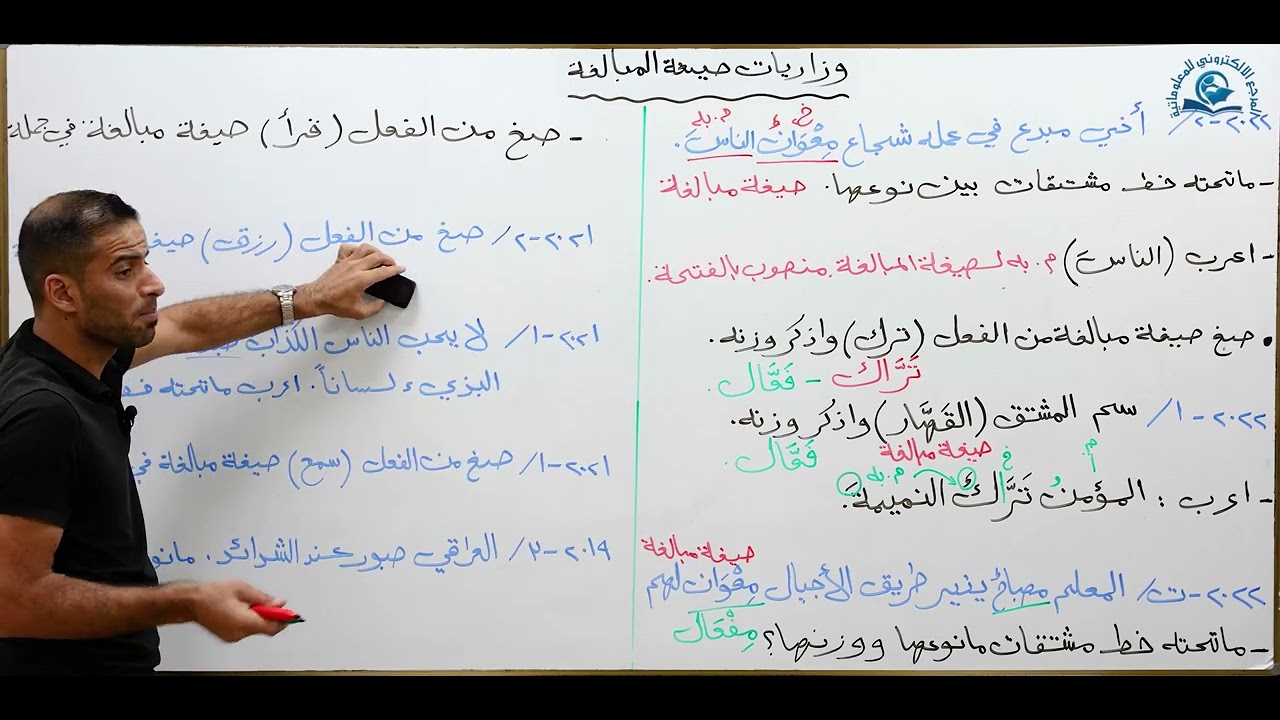 وزاريات صيغة المبالغة
المرجع الالكتروني للمعلوماتية
٢٠٢٢-٢/ أخي مبدع في عمله شجاع مِعْوَانٌ الناسَ.
خ م. به
- ماتحته خط مشتقات بين نوعها. صيغة مبالغة
- اعرب (الناسَ) م. به لصيغة المبالغة. منصوب بالفتحة.
• صغ صيغة مبالغة من الفعل (ترك) واذكر وزنه.
تَرَّاك - فَعَّال.
٢٠٢٢-١/ سمِ المشتق (القَهَّار) واذكر وزنه.
صيغة مبالغة فَعَّال.
م. به
- اعرب : المؤمنُ تَرَّاكٌ النميمةَ.
صيغة مبالغة
٢٠٢٢-ت/ المعلم مصباحٌ ينير طريق الأجيال مِعْوَان لهم
مِفْعَال
- ماتحته خط مشتقات مانوعها ووزنها؟
- صغ من الفعل (قرأ) صيغة مبالغة في جملة
٢٠٢١-٢/ صغ من الفعل (رزق)
٢٠٢١-١/ لا يحب الناس الكذاب
البذيء لساناً. اعرب ماتحته
٢٠٢١-١/ صغ من الفعل (سمع) صيغة مبالغة في
٢٠١٩-٣/ العراقي صبور عند الشدائد.